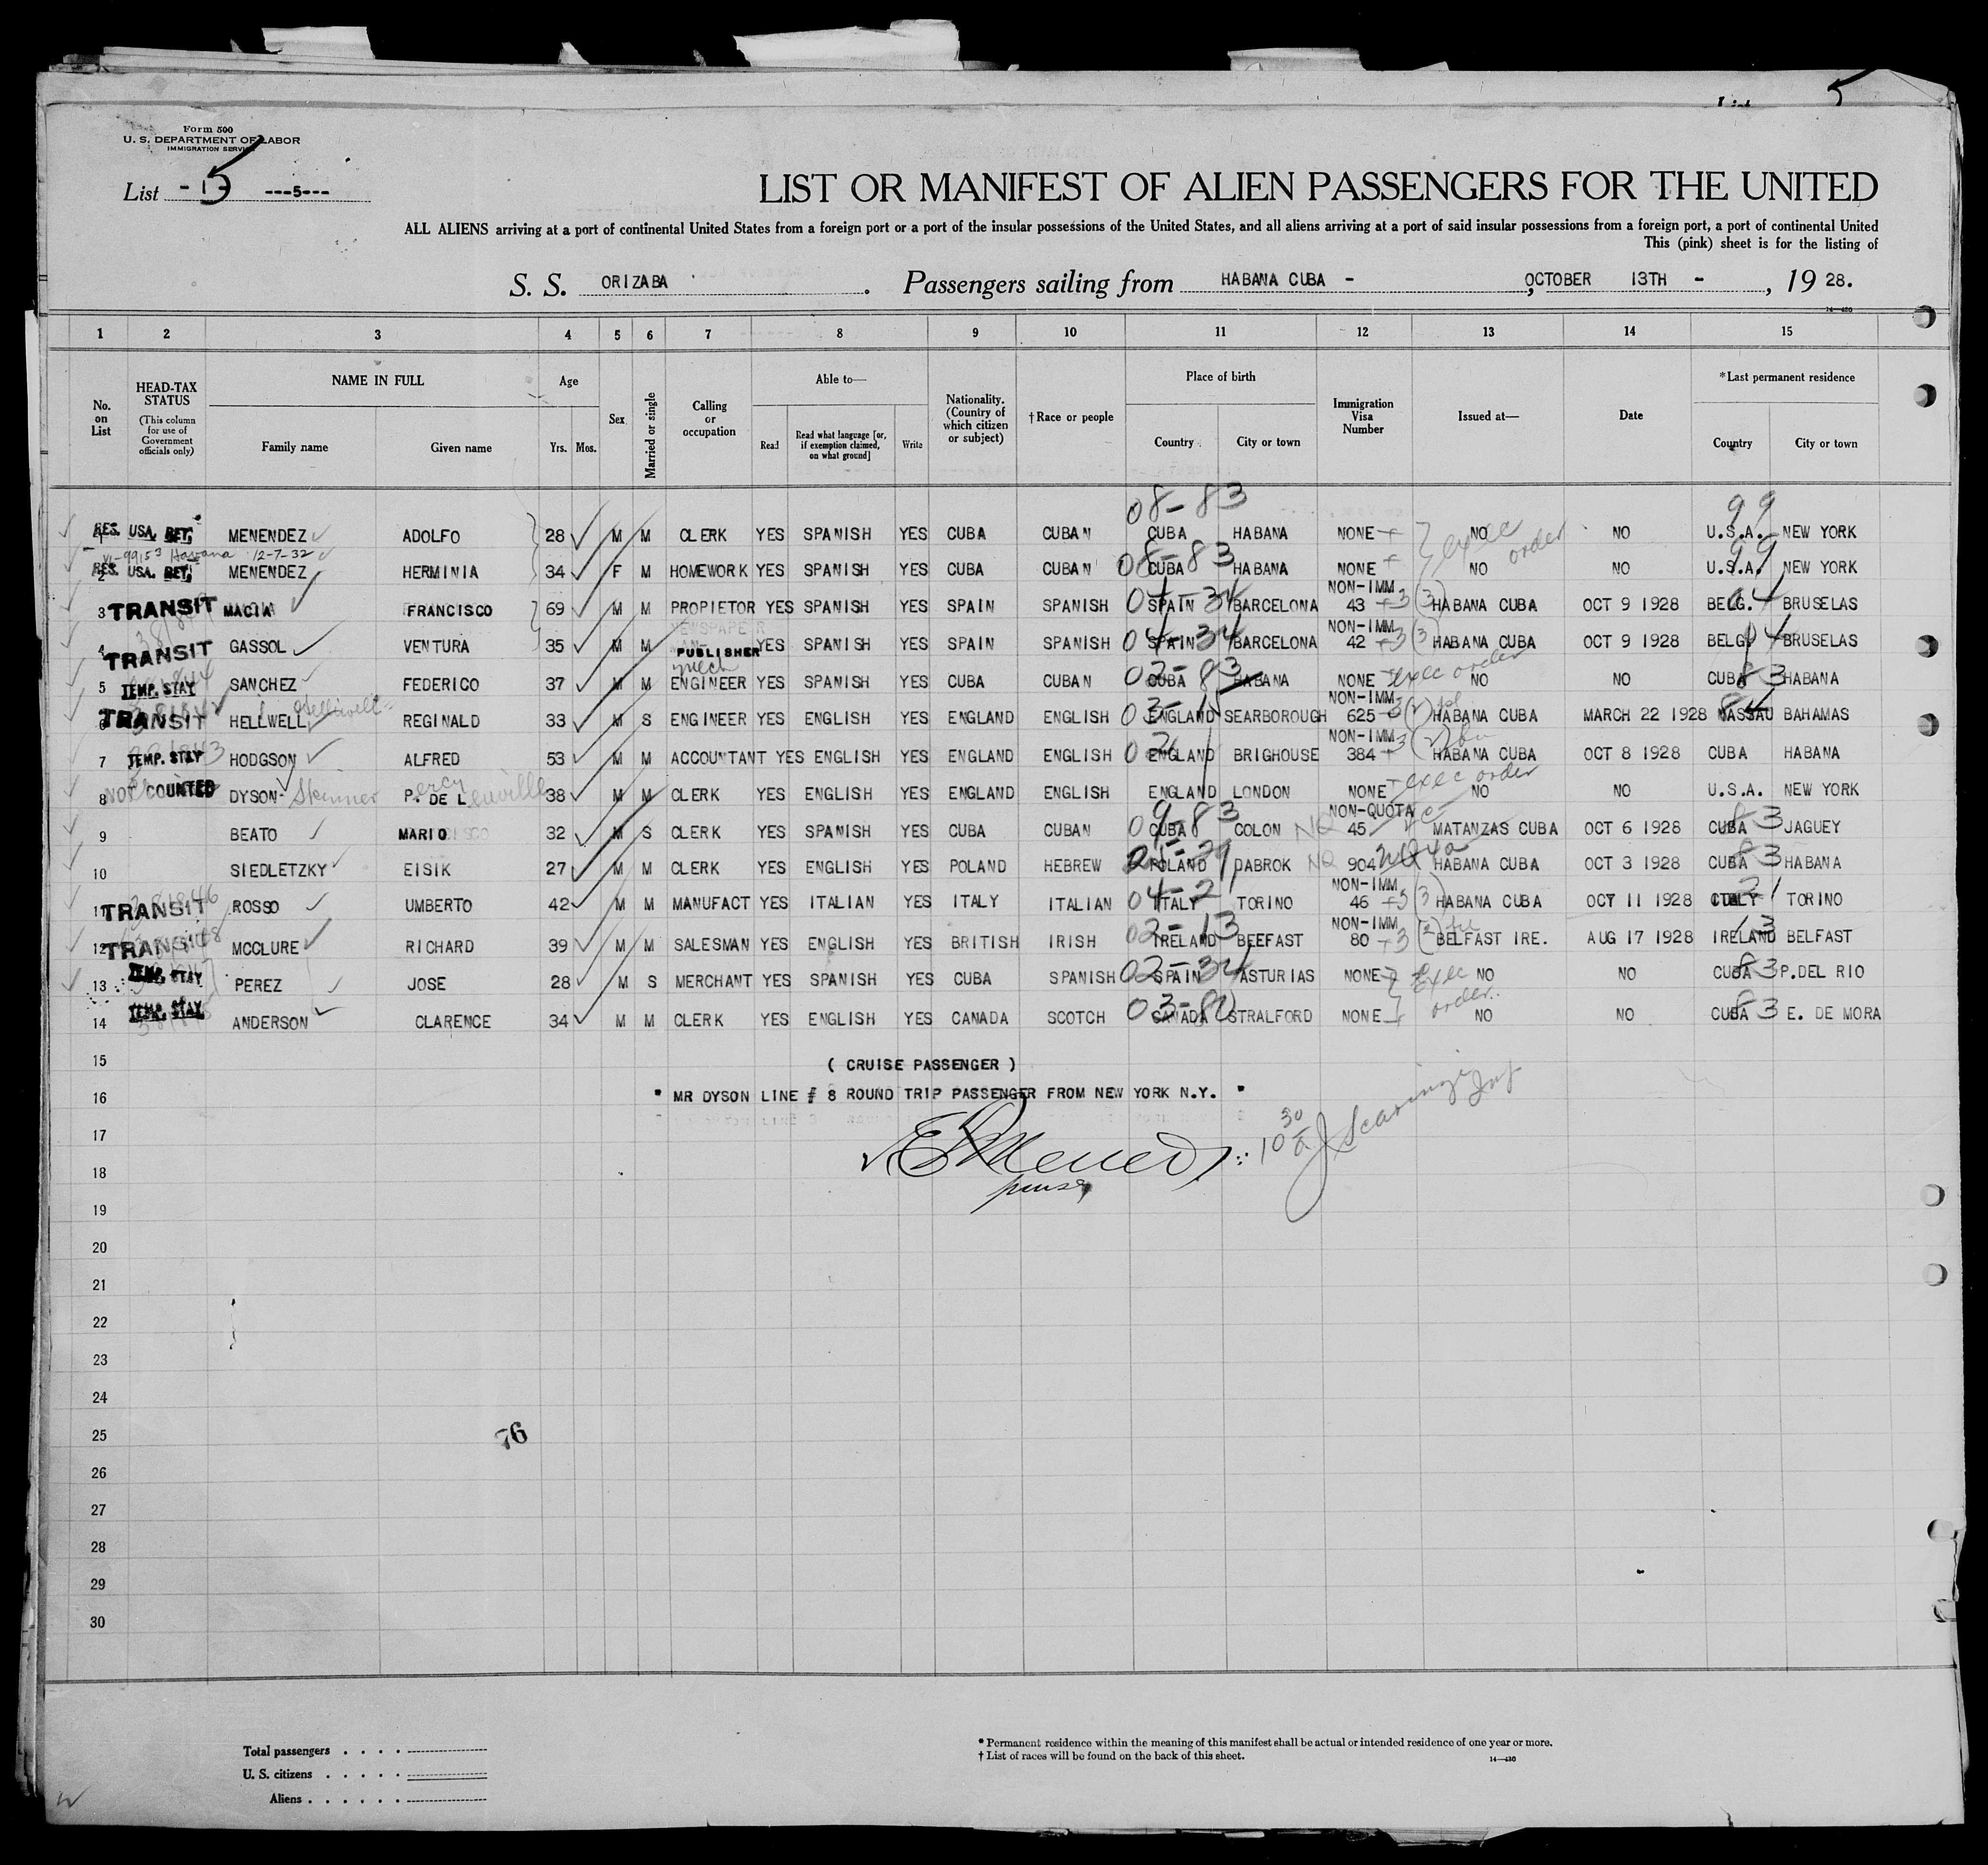 List 5
Form 500
U. S. DEPARTMENT OF LABOR
IMMIGRATION SERVICE
List - 5 ---5---
LIST OR MANIFEST OF ALIEN PASSENGERS FOR THE UNITED
ALL ALIENS arriving at a port of continental United States from a foreign port or a port of the insular possessions of the United States, and all aliens arriving at a port of said insular possessions from a foreign port, a port of continental United
This (pink) sheet is for the listing of
S. S. ORIZABA. Passengers sailing from HABANA CUBA - , OCTOBER 13TH - , 19 28.
14—430
1 2 3 4 5 6 7 8 9 10 11 12 13 14 15
No. on List HEAD-TAX STATUS (This column for use of Government officials only) NAME IN FULL Family name Given name Age Yrs. Mos. Sex Married or single Calling or occupation Able to— Read Read what language [or, if exemption claimed, on what ground] Write Nationality. (Country of which citizen or subject) †Race or people Place of birth Country City or town Immigration Visa Number Issued at— Date *Last permanent residence Country City or town
08-83 99
1 RES. USA. RET. MENENDEZ ADOLFO 28 M M CLERK YES SPANISH YES CUBA CUBAN CUBA HABANA NONE NO exec order NO U.S.A. NEW YORK
VI-99153 Havana 12-7-32
2 RES. USA. RET. MENENDEZ HERMINIA 34 F M HOMEWORK YES SPANISH YES CUBA CUBAN 08-83 CUBA HABANA NONE NO NO 99 U.S.A. NEW YORK
3 TRANSIT MACIA FRANCISCO 69 M M PROPIETOR YES SPANISH YES SPAIN SPANISH 04-34 SPAIN BARCELONA NON-IMM 43 +3 (3) HABANA CUBA OCT 9 1928 BELG. 04 BRUSELAS
4 TRANSIT GASSOL VENTURA 35 M M NEWSPAPER PUBLISHER YES SPANISH YES SPAIN SPANISH 04-34 SPAIN BARCELONA NON-IMM 42 +3 (3) HABANA CUBA OCT 9 1928 BELG. 04 BRUSELAS
5 TEMP. STAY SANCHEZ FEDERICO 37 M M mech ENGINEER YES SPANISH YES CUBA CUBAN 02-83 CUBA HABANA NONE exec order NO NO CUBA 83 HABANA
6 TRANSIT HELLWELL Helliwell REGINALD 33 M S ENGINEER YES ENGLISH YES ENGLAND ENGLISH 03-1 ENGLAND SEARBOROUGH NON-IMM 625 HABANA CUBA MARCH 22 1928 NASSAU BAHAMAS
7 TEMP. STAY HODGSON ALFRED 53 M M ACCOUNTANT YES ENGLISH YES ENGLAND ENGLISH 02 ENGLAND BRIGHOUSE NON-IMM 384 HABANA CUBA OCT 8 1928 CUBA HABANA
8 NOT COUNTED DYSON- Skinner P. ercy DE L enville 38 M M CLERK YES ENGLISH YES ENGLAND ENGLISH ENGLAND LONDON NONE exec order NO NO U.S.A. NEW YORK
9 BEATO MARIO 32 M S CLERK YES SPANISH YES CUBA CUBAN 09-83 CUBA COLON NQ NON-QUOTA 45 MATANZAS CUBA OCT 6 1928 CUBA 83 JAGUEY
10 SIEDLETZKY EISIK 27 M M CLERK YES ENGLISH YES POLAND HEBREW POLAND DABROK NQ 904 HABANA CUBA OCT 3 1928 CUBA 83 HABANA
11 TRANSIT ROSSO UMBERTO 42 M M MANUFACT YES ITALIAN YES ITALY ITALIAN 04-21 ITALY TORINO NON-IMM 46 +3 (3) HABANA CUBA OCT 11 1928 ITALY 21 TORINO
12 TRANSIT MCCLURE RICHARD 39 M M SALESMAN YES ENGLISH YES BRITISH IRISH 02-13 IRELAND BEEFAST NON-IMM 80 +3 BELFAST IRE. AUG 17 1928 IRELAND 13 BELFAST
13 TEMP. STAY PEREZ JOSE 28 M S MERCHANT YES SPANISH YES CUBA SPANISH 02-34 SPAIN ASTURIAS NONE Exec order NO NO CUBA 83 P.DEL RIO
14 TEMP. STAY ANDERSON CLARENCE 34 M M CLERK YES ENGLISH YES CANADA SCOTCH 03-80 CANADA STRALFORD NONE NO NO CUBA 83 E. DE MORA
15 ( CRUISE PASSENGER )
16 " MR DYSON LINE # 8 ROUND TRIP PASSENGER FROM NEW YORK N.Y. "
17
18 purser
19
20
21
22
23
24
25 76
26
27
28
29
30
Total passengers . . . .
U. S. citizens . . . . .
Aliens . . . . . .
* Permanent residence within the meaning of this manifest shall be actual or intended residence of one year or more.
† List of races will be found on the back of this sheet.
14—430